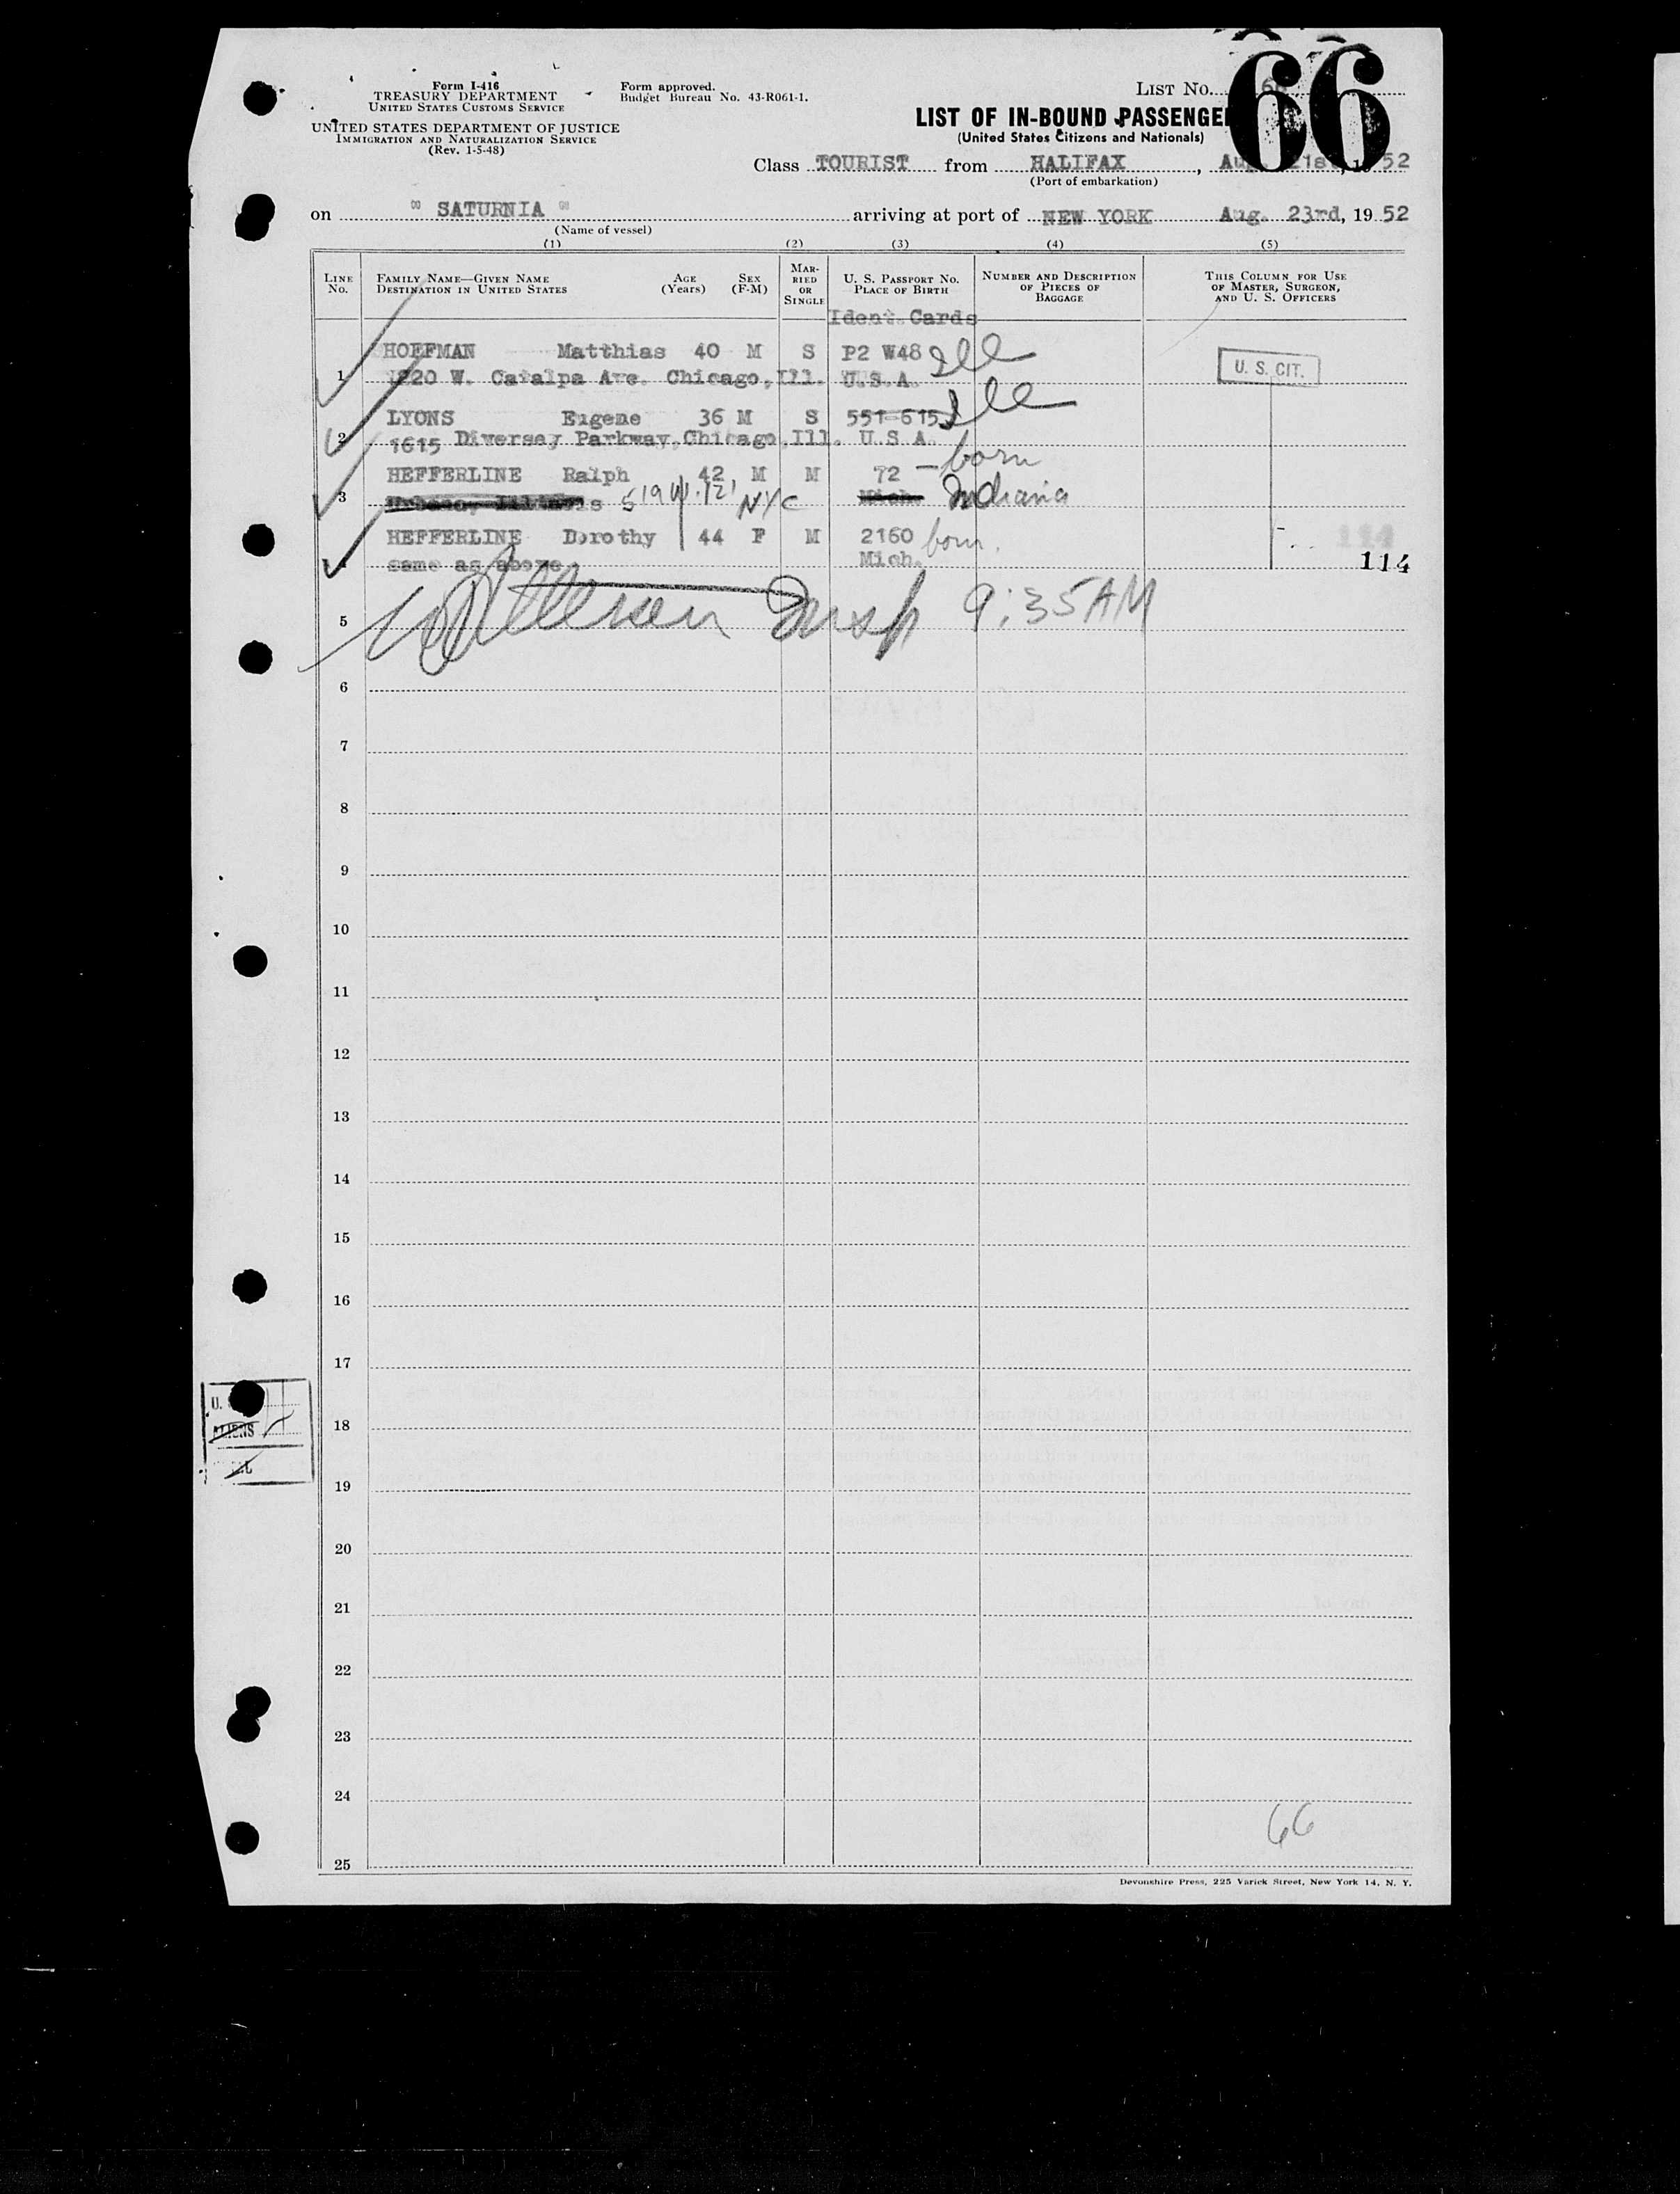 Form I-416
TREASURY DEPARTMENT
UNITED STATES CUSTOMS SERVICE
UNITED STATES DEPARTMENT OF JUSTICE
IMMIGRATION AND NATURALIZATION SERVICE
(Rev. 1-5-48)
Form approved.
Budget Bureau No. 43-R061-1.
LIST No.
66
LIST OF IN-BOUND PASSENGE
(United States Citizens and Nationals)
Class TOURIST from HALIFAX, Aug. 21st, 1952
(Port of embarkation)
on " SATURNIA " arriving at port of NEW YORK Aug. 23rd, 19 52
(Name of vessel)
(1) (2) (3) (4) (5)
LINE No.
FAMILY NAME—GIVEN NAME
DESTINATION IN UNITED STATES
AGE (Years)
SEX (F-M)
MARRIED OR SINGLE
U. S. PASSPORT NO.
PLACE OF BIRTH
NUMBER AND DESCRIPTION OF PIECES OF BAGGAGE
THIS COLUMN FOR USE OF MASTER, SURGEON, AND U. S. OFFICERS
Ident. Cards
HOFFMAN Matthias 40 M S P2 W48 Ill
1 W. Catalpa Ave. Chicago, Ill. U.S.A.
U. S. CIT.
LYONS Eugene 36 M S 551-615 Ill
2 1615 Diversey Parkway, Chicago, Ill. U.S.A.
HEFFERLINE Ralph 42 M M 72 — born
3 519 W. 121 NYC Mich. Indiana
HEFFERLINE Dorothy 44 F M 2160 born.
4 same as above Mich. 114
5 Insp 9:35 AM
6
7
8
9
10
11
12
13
14
15
16
17
18
19
20
21
22
23
24
25
U. S.
ALIENS
66
Devonshire Press, 225 Varick Street, New York 14, N. Y.